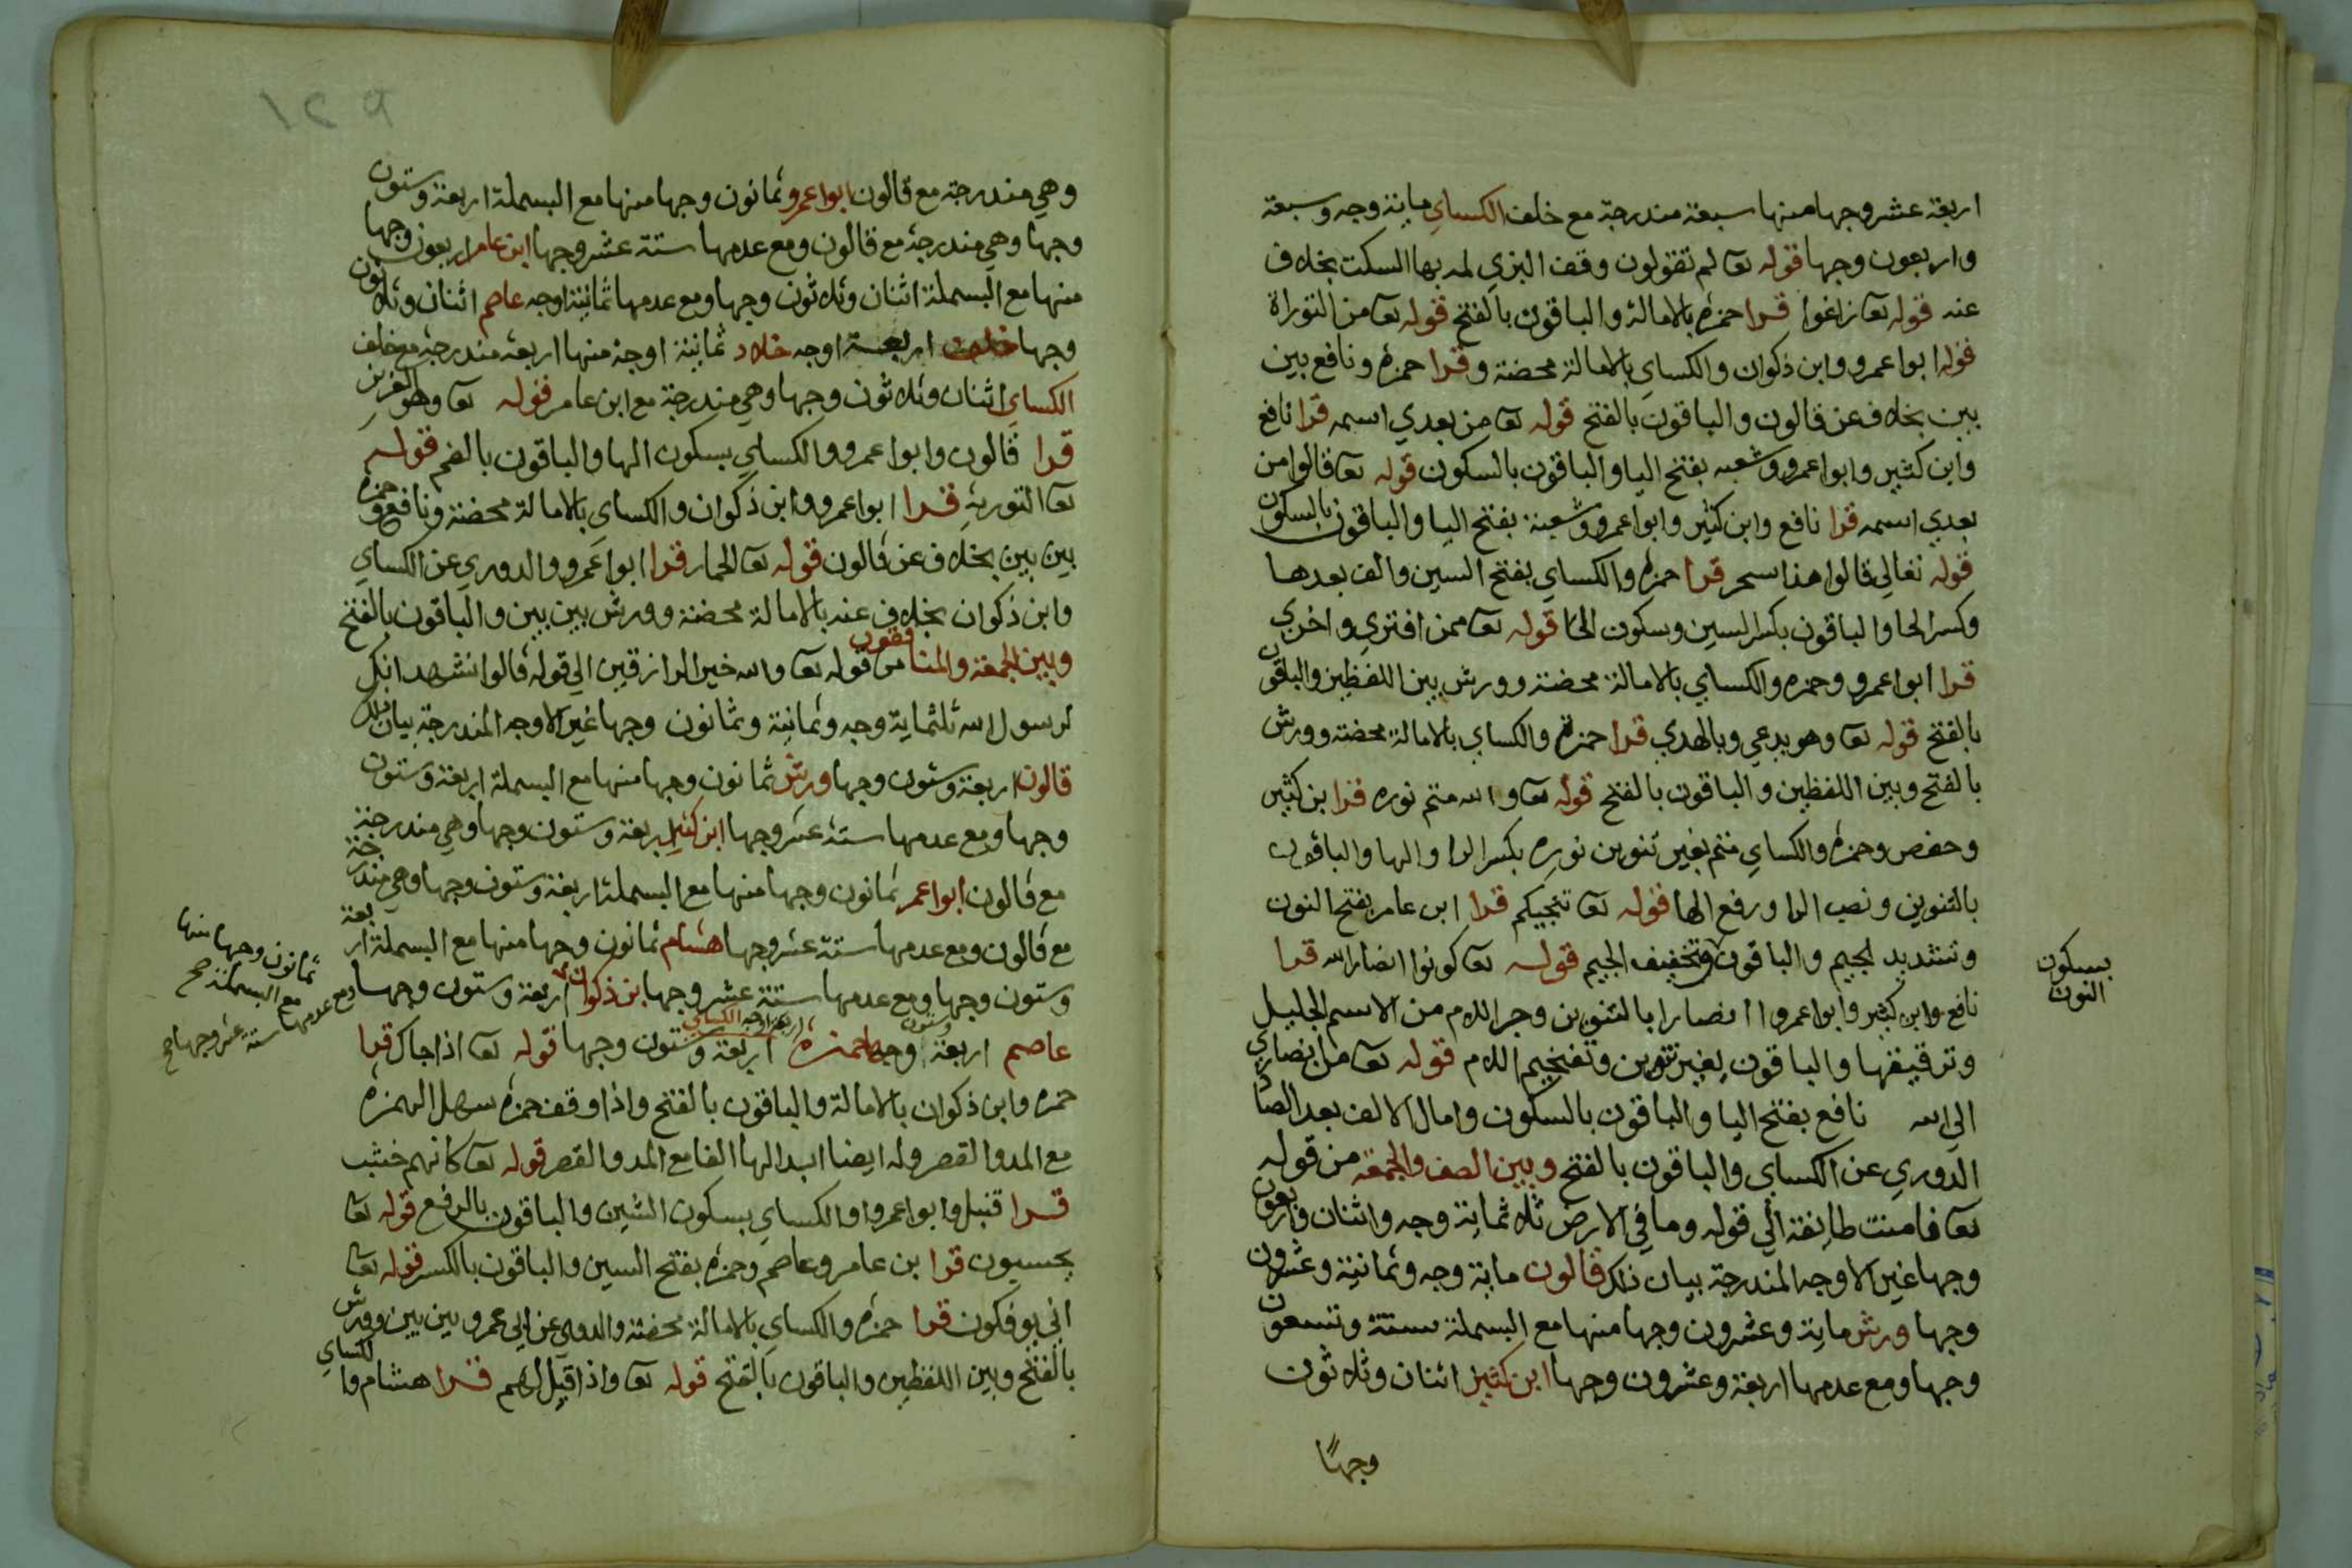 اربعة عشر وجها منها سبعة مندرجة مع خلف الكساي ماية وجه وسبعة
واربعون وجها قوله تعا لم تقولون وقف البزي لمه بها السكت بخلاف
عنه قوله تعا زاغوا قرا حمزه بالامالة والباقون بالفتح قوله تعا من التوراة
قوله ابوا عمرو وابن ذكوان والكساي بالامالة محضة وقرا حمزه ونافع بين
بين بخلاف عن قالون والباقون بالفتح قوله تعا من بعدي اسمه قرا نافع
وابن كثير وابوا عمرو وشعبه بفتح اليا والباقون بالسكون قوله تعا قالوا من
بعدي اسمه قرا نافع وابن كثير وابوا عمرو وشعبة بفتح اليا والباقون بالسكون
قوله تعالي قالوا هذا سحر قرا حمزه والكساي بفتح السين والف بعدها
وكسر الحا والباقون بكسر السين وسكون الحا قوله تعا ممن افتري واخري
قرا ابوا عمرو وحمزه والكساي بالامالة محضة وورش بين اللفظين والباقون
بالفتح قوله تعا وهو يدعي وبالهدي قرا حمزة والكساي بالامالة محضة وورش
بالفتح وبين اللفظين والباقون بالفتح قوله تعا والله متم نوره قرا بن كثير
وحفص وحمزه والكساي متم بغير تنوين نوره بكسر الرا والها والباقون
بالتنوين ونصب الرا ورفع الها قوله تعا تنجيكم قرا ابن عامر بفتح النون
وتشديد الجيم والباقون وتخفيف الجيم قوله تعا كونوا انصارا لله قرا
بسكون
النون
نافع وابن كثير وابوا عمروا انصارا بالتنوين وجر اللام من الاسم الجليل
وترقيقها والباقون بغير تنوين وتفخيم اللام قوله تعا من انصاري
الي الله نافع بفتح اليا والباقون بالسكون وامال الالف بعد الصاد
الدوري عن الكساي والباقون بالفتح وبين الصف والجمعة من قوله
تعا فامنت طايفة الي قوله وما في الارض ثلاثماية وجه واثنان واربعون
وجها غير الاوجه المندرجة بيان ذلك قالون ماية وجه وثمانية وعشرون
وجها ورش ماية وعشرون وجها منها مع البسملة ستة وتسعون
وجها ومع عدمها اربعة وعشرون وجها ابن كثير اثنان وثلاثون
وجهًا
١٢٩
وهي مندرجة مع قالون ابوا عمرو ثمانون وجها منها مع البسملة اربعة وستون
وجها وهي مندرجة مع قالون ومع عدمها ستة عشر وجها ابن عامر اربعون وجها
منها مع البسملة اثنان وثلاثون وجها ومع عدمها ثمانية اوجه عاصم اثنان وثلاثون
وجها خلف اربعة اوجه خلاد ثمانية اوجه منها اربعة مندرجة مع خلف
الكساي اثنان وثلاثون وجها وهي مندرجة مع ابن عامر قوله تعا وهو العزيز
قرا قالون وابوا عمرو والكساي بسكون الها والباقون بالضم قوله
تعا التورية قرا ابوا عمرو وابن ذكوان والكساي بالامالة محضة ونافع وحمزه
بين بين بخلاف عن قالون قوله تعا الحمار قرا ابوا عمرو والدوري عن الكساي
وابن ذكوان بخلاف عنه بالامالة محضة وورش بين بين والباقون بالفتح
وبين الجمعة والمنافقون من قوله تعا والله خير الرازقين الي قوله قالوا نشهد انك
لرسول الله ثلثماية وجه وثمانية وثمانون وجها غير الاوجه المندرجة بيان ذلك
قالون اربعة وستون وجها ورش ثمانون وجها منها مع البسملة اربعة وستون
وجها ومع عدمها ستة عشر وجها ابن كثير اربعة وستون وجها وهي مندرجة
مع قالون ابوا عمر ثمانون وجها منها مع البسملة اربعة وستون وجها وهي مندرجة
مع قالون ومع عدمها ستة عشر وجها هشام ثمانون وجها منها مع البسملة اربعة
وستون وجها ومع عدمها ستة عشر وجها بن ذكوان اربعة وستون وجها
ثمانون وجها منها
مع البسملة صح
ومع عدمها ستة عشر وجها صح
عاصم اربعة وستون وجها حمزة اربعة اوجه الكساي اربعة وستون وجها قوله تعا اذا جاك قرا
حمزه وابن ذكوان بالامالة والباقون بالفتح واذا وقف حمزه سهل الهمزه
مع المد والقصر وله ايضا ابدالها الفا مع المد والقصر قوله تعا كانهم خشب
قرا قنبل وابوا عمروا والكساي بسكون الشين والباقون بالرفع قوله تعا
يحسبون قرا بن عامر وعاصم وحمزه بفتح السين والباقون بالكسر قوله تعا
اني يوفكون قرا حمزه والكساي بالامالة محضة والدوري عن ابي عمرو بين بين وورش
بالفتح وبين اللفظين والباقون بالفتح قوله تعا واذا قيل لهم قرا هشام والكساي